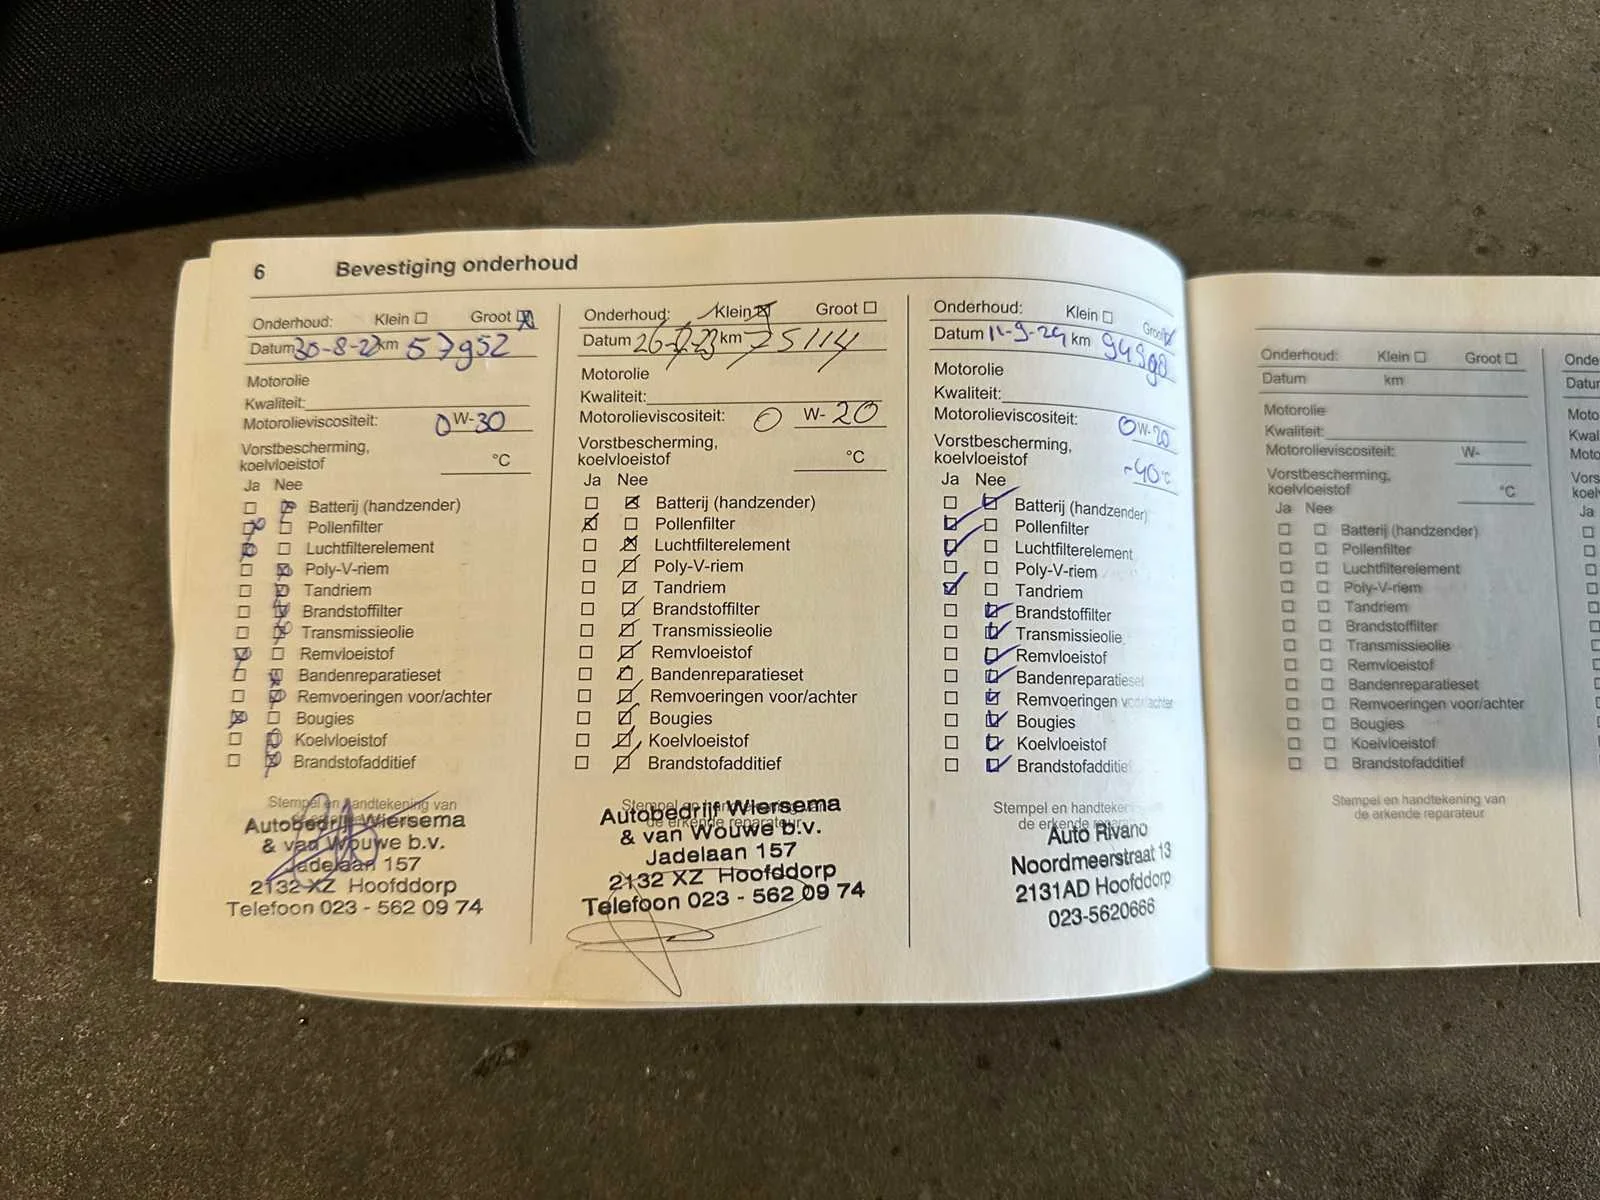 6 Bevestiging onderhoud
Onderhoud: Klein ☐ Groot ☒
Datum 30-8-22 km 57952
Motorolie
Kwaliteit:
Motorolieviscositeit: 0 W-30
Vorstbescherming,
koelvloeistof °C
Ja Nee
Batterij (handzender)
Pollenfilter
Luchtfilterelement
Poly-V-riem
Tandriem
Brandstoffilter
Transmissieolie
Remvloeistof
Bandenreparatieset
Remvoeringen voor/achter
Bougies
Koelvloeistof
Brandstofadditief
Stempel en handtekening van
Autobedrijf Wiersema
& van Wouwe b.v.
Jadelaan 157
2132 XZ Hoofddorp
Telefoon 023 - 562 09 74
Onderhoud: Klein ☒ Groot ☐
Datum km 75114
Motorolie
Kwaliteit:
Motorolieviscositeit: 0 W- 20
Vorstbescherming,
koelvloeistof °C
Ja Nee
Batterij (handzender)
Pollenfilter
Luchtfilterelement
Poly-V-riem
Tandriem
Brandstoffilter
Transmissieolie
Remvloeistof
Bandenreparatieset
Remvoeringen voor/achter
Bougies
Koelvloeistof
Brandstofadditief
Stempel en handtekening van
de erkende reparateur
Autobedrijf Wiersema
& van Wouwe b.v.
Jadelaan 157
2132 XZ Hoofddorp
Telefoon 023 - 562 09 74
Onderhoud: Klein ☐ Groot ☑
Datum 11-9-24 km
Motorolie
Kwaliteit:
Motorolieviscositeit: 0 W-20
Vorstbescherming,
koelvloeistof -40 °C
Ja Nee
Batterij (handzender)
Pollenfilter
Luchtfilterelement
Poly-V-riem
Tandriem
Brandstoffilter
Transmissieolie
Remvloeistof
Bandenreparatieset
Remvoeringen voor/achter
Bougies
Koelvloeistof
Brandstofadditief
Stempel en handtekening
de erkende
Auto Rivano
Noordmeerstraat 13
2131AD Hoofddorp
023-5620666
Onderhoud: Klein ☐ Groot ☐
Datum km
Motorolie
Kwaliteit:
Motorolieviscositeit: W-
Vorstbescherming,
koelvloeistof °C
Ja Nee
Batterij (handzender)
Pollenfilter
Luchtfilterelement
Poly-V-riem
Tandriem
Brandstoffilter
Transmissieolie
Remvloeistof
Bandenreparatieset
Remvoeringen voor/achter
Bougies
Koelvloeistof
Brandstofadditief
Stempel en handtekening van
de erkende reparateur